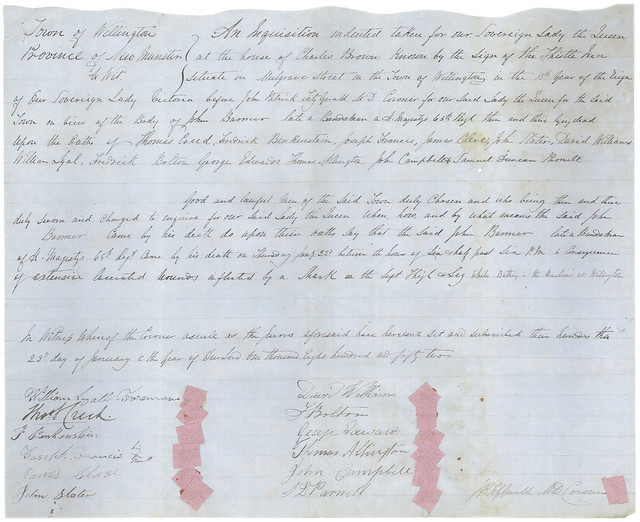 Town of Wellington
Province of New Munster
To Wit
An Inquisition indented taken for our Sovereign Lady the Queen
at the house of Charles Brown Known by the Sign of the Inn
situate in Mulgrave Street in the Town of Wellington, in the 15th year of the Reign
of Our Sovereign Lady Victoria before John Patrick FitzGerald M.D. Coroner for our Said Lady the Queen for the Said
Town on view of the Body of John Balmer late a Bandsman in H. Majestys 65th Regt then and there lying dead
Upon the Oaths of Thomas Creed, Fredrick Benkenstein, Joseph Francis, James John Slater, David Williams
William Lyal, Fredrick Bolton George Edwards Thomas Allington John Campbell & Samuel Duncan
Good and lawful Men of the Said Town duly Chosen and who being then and there
duly Sworn and Charged to enquire for our Said Lady the Queen When how, and by what means the Said John
Balmer Came by his death do upon their oaths Say that the Said John Balmer late a Bandsman
of H. Majestys 65th Regt Came by his death on Thursday between the hours of Six & half past Six P.M in Consequence
of extensive lacerated Wounds inflicted by a Shark on the Thigh & Leg while Bathing in the Harbour at Wellington
In Witness Whereof the Coroner as well as the Jurors aforesaid have hereunto Set and subscribed their hands this
23d day of January in the year of Our Lord One thousand Eight hundred and fifty two
William Lyall Foreman
Thos Creed
F Benkenstein
Joseph Francis
James
John Slater
David Williams
F Bolton
George Edward
Thomas Allington
John Campbell
S D
J P FitzGerald M D Coroner